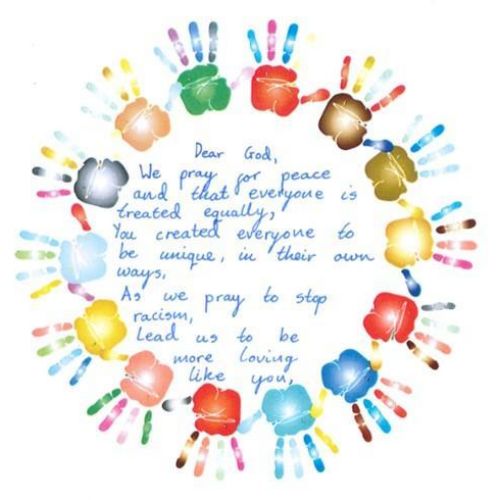 Dear God,
We pray for peace
and that everyone is
treated equally,
You created everyone to
be unique, in their own
ways,
As we pray to stop
racism,
Lead us to be
more loving
like you,